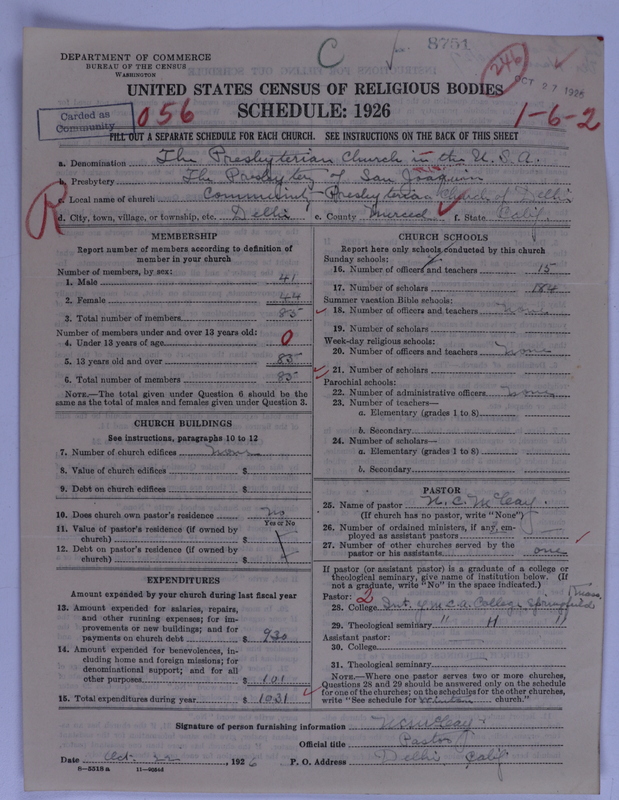 DEPARTMENT OF COMMERCE
BUREAU OF THE CENSUS
WASHINGTON
C
8751
246
OCT 27 1926
UNITED STATES CENSUS OF RELIGIOUS BODIES
SCHEDULE: 1926
Carded as
Community
056
1-6-2
FILL OUT A SEPARATE SCHEDULE FOR EACH CHURCH. SEE INSTRUCTIONS ON THE BACK OF THIS SHEET
R
a. Denomination The Presbyterian Church in the U.S.A.
b. Presbytery The Presbytery of San Joaquin
c. Local name of church Community Presbyterian Church of Delhi
d. City, town, village, or township, etc. Delhi e. County Merced f. State Calif
MEMBERSHIP
Report number of members according to definition of
member in your church
Number of members, by sex:
1. Male 41
2. Female 44
3. Total number of members 85
Number of members under and over 13 years old:
4. Under 13 years of age 0
5. 13 years old and over 85
6. Total number of members 85
NOTE.—The total given under Question 6 should be the
same as the total of males and females given under Question 3.
CHURCH BUILDINGS
See instructions, paragraphs 10 to 12
7. Number of church edifices None
8. Value of church edifices $
9. Debt on church edifices $
10. Does church own pastor's residence No
Yes or No
11. Value of pastor's residence (if owned by
church) $
12. Debt on pastor's residence (if owned by
church) $
EXPENDITURES
Amount expended by your church during last fiscal year
13. Amount expended for salaries, repairs,
and other running expenses; for im-
provements or new buildings; and for
payments on church debt $ 930
14. Amount expended for benevolences, in-
cluding home and foreign missions; for
denominational support; and for all
other purposes $ 101
15. Total expenditures during year $ 1031
CHURCH SCHOOLS
Report here only schools conducted by this church
Sunday schools:
16. Number of officers and teachers 15
17. Number of scholars 184
Summer vacation Bible schools:
18. Number of officers and teachers None
19. Number of scholars
Week-day religious schools:
20. Number of officers and teachers None
21. Number of scholars
Parochial schools:
22. Number of administrative officers None
23. Number of teachers—
a. Elementary (grades 1 to 8)
b. Secondary
24. Number of scholars—
a. Elementary (grades 1 to 8)
b. Secondary
PASTOR
25. Name of pastor
(If church has no pastor, write "None")
26. Number of ordained ministers, if any, em-
ployed as assistant pastors
27. Number of other churches served by the
pastor or his assistants one
If pastor (or assistant pastor) is a graduate of a college or
theological seminary, give name of institution below. (If
not a graduate, write "No" in the space indicated.)
Pastor: 2 Mass.
28. College Int. Y.M.C.A. College, Springfield
29. Theological seminary " " "
Assistant pastor:
30. College
31. Theological seminary
NOTE.—Where one pastor serves two or more churches,
Questions 28 and 29 should be answered only on the schedule
for one of the churches; on the schedules for the other churches,
write "See schedule for Winton church."
Signature of person furnishing information
Official title Pastor
Date Oct. 22, 1926 P. O. Address Delhi Calif
8—5518a 11—9054d